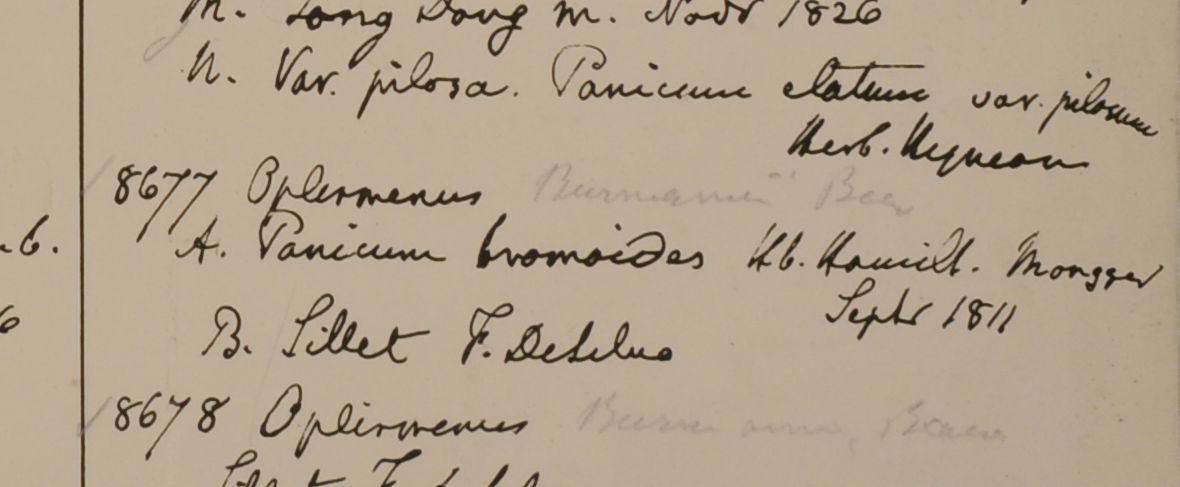 M. Tong Dong m. Novr 1826
N. Var. pilosa. Panicum elatum var. pilosum
Herb. Heynean
8677 Oplismenus Burmanni Beau
A. Panicum bromoides Hb. Hamilt. Mongger
Septr 1811
B. Sillet F. De Silva
8678 Oplismenus Burmanni, Beauv
Sillet F. de Sil